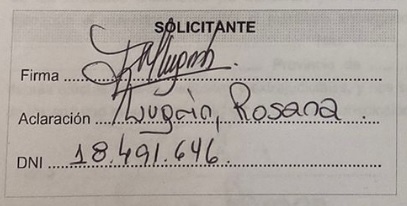 SOLICITANTE
Firma
Aclaración Rosana
DNI 18.491.646